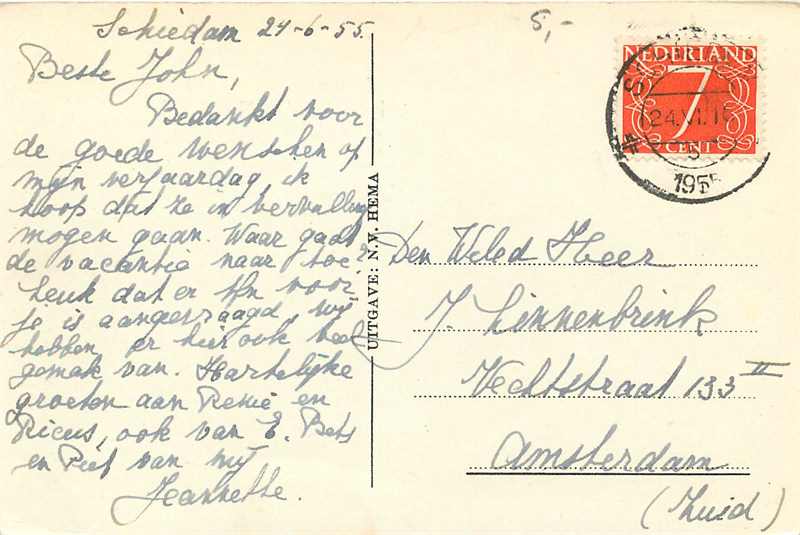 Schiedam 24-6-55.
Beste John,
Bedankt voor
de goede wenschen op
mijn verjaardag ik
hoop dat ze in vervulling
mogen gaan. Waar gaat
de vacantie naar toe?
Leuk dat er tfn voor
je is aangevraagd, wij
hebben er hier ook veel
gemak van. Hartelijke
groeten aan Renie en
Ricus, ook van E. Bets
en Piet van mij
Jeannette.
UITGAVE: N.V. HEMA
5,-
NEDERLAND
7
CENT
24.VI.16
5
1955
Den Weled Heer
J. Linnenbrink
Vechtstraat 133 II
Amsterdam
(Zuid)